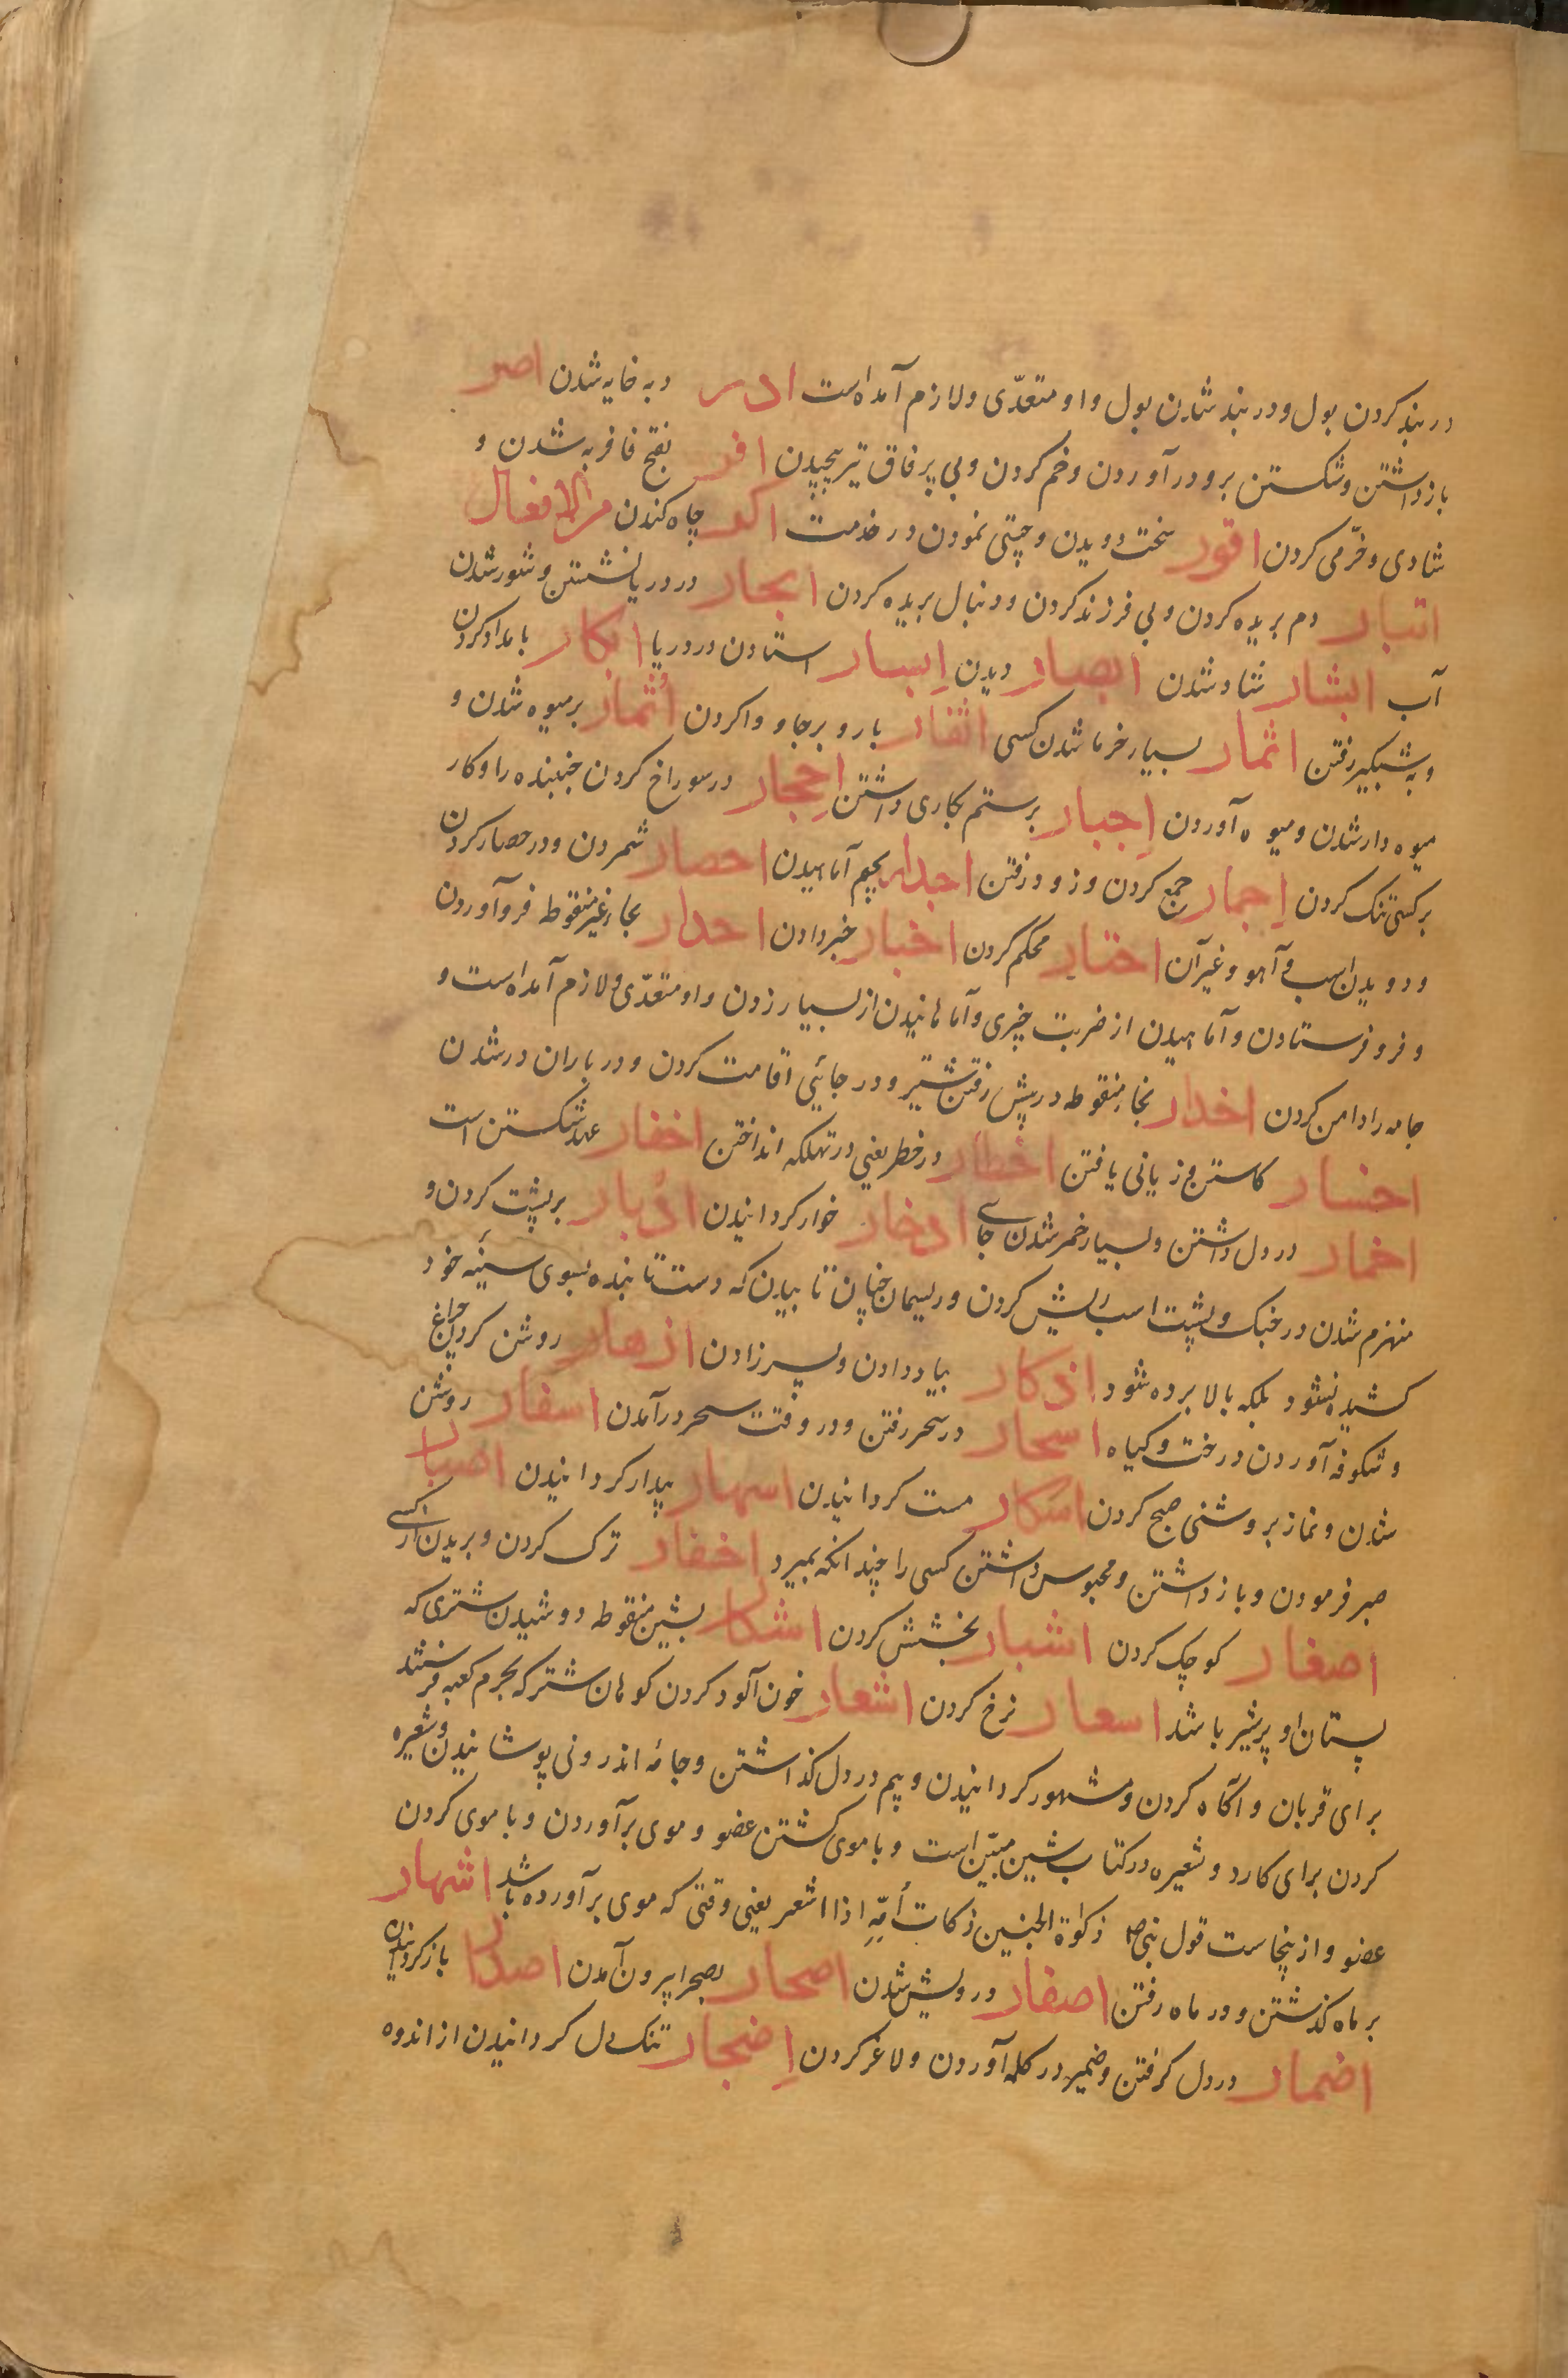 در بند کردن بول و در بند شدن بول و او متعدّی و لازم آمده است ادر دبه خایه شدن اصر
باز داشتن و شکستن و برو در آوردن و خم کردن و پی بر فاق تیر پیچیدن افر بفتح فا فربه شدن و
شادی و خرّمی کردن افور سخت دویدن و چستی نمودن در خدمت اکر چاه کندن من الافعال
ابتار دم بریده کردن و بی فرزند کردن و دنبال بریده کردن ابحار در دریا نشستن و شور شدن
آب ابشار شاد شدن ابصار دیدن ابسار استادن در دریا ابکار بامداد کردن
و به شبگیر رفتن اثمار بسیار خرما شدن کسی اثفار باردم بر جا وا کردن اثمار بر میوه شدن و
میوه دار شدن و میوه آوردن اجبار بر ستم بکاری داشتن احجار در سوراخ کردن جنبنده را و کار
بر کسی تنک کردن اجمار جمع کردن و زود رفتن اجدار بجیم آماهیدن احصار شمردن و در حصار کردن
و دویدن اسب و آهو و غیر آن احتار محکم کردن اخبار خبر دادن احدار بحاء غیر منقوطه فرو آوردن
و فرو فرستادن و آماهیدن از ضربت چیزی و آماهانیدن از بسیار زدن و او متعدّی و لازم آمده است و
جامه را دامن کردن اخدار بخاء منقوطه در پیش رفتن شتر و در جائی اقامت کردن و در باران در شدن
اخسار کاستن و زیانی یافتن اخطار در خطر یعنی در تهلکه انداختن اخفار عهد شکستن است
اخمار در دل داشتن و بسیار خمر شدن جای ادخار خوار کردانیدن ادبار بر پشت کردن و
منهزم شدن در جنک و پشت اسب ریش کردن و ریسمان چنان تابیدن که دست تابنده بسوی سینه خود
کشیده نشود بلکه بالا برده شود اذکار بیاد دادن و پسر زادن ازهار روشن کردن چراغ
و شکوفه آوردن درخت و کیاه اسحار در سحر رفتن و در وقت سحر در آمدن اسفار روشن
شدن و نماز بروشنی صبح کردن اسکار مست کردانیدن اسهار بیدار کردانیدن اصبار
صبر فرمودن و باز داشتن و محبوس داشتن کسی را چندانکه بمیرد اخفار ترک کردن و بریدن از کسی
اصغار کوچک کردن اشبار بخشش کردن اشکار بشین منقوطه دوشیدن شتری که
پستان او پر شیر باشد اسعار نرخ کردن اشعار خون آلود کردن کوهان شتر که بحرم کعبه فرستند
برای قربان و آگاه کردن و مشهور کردانیدن و بیم در دل گذاشتن و جامهٔ اندرونی پوشانیدن و شعیره
کردن برای کارد و شعیره در کتاب شین مبیّن است و با موی کشتن عضو و موی بر آوردن و با موی کردن
عضو و ازینجاست قول نبی ص ذکوة الجنین ذکات أمّه اذا اشعر یعنی وقتی که موی بر آورده باشد اشهار
بر ماه گذشتن و در ماه رفتن اصفار درویش شدن اصحار بصحرا بیرون آمدن اصدار باز کردانیدن
اضمار در دل کرفتن و ضمیر در کلمه آوردن و لاغر کردن اضجار تنک دل کردانیدن از اندوه